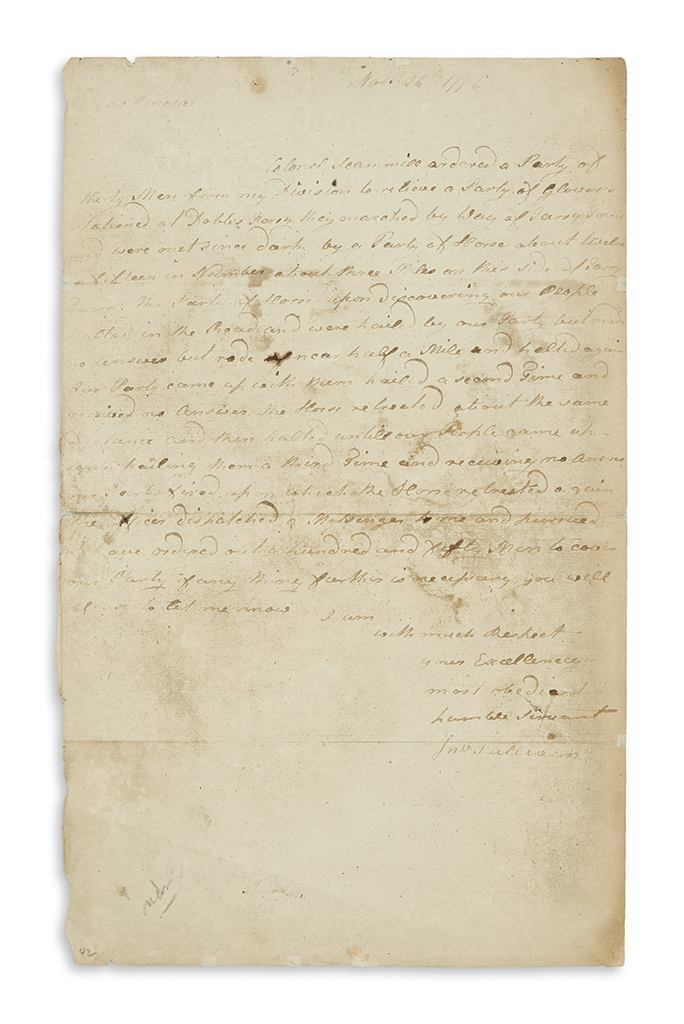 Novr. 26th 1776
Dear General
Colonel Scammill ordered a Party of
thirty Men from my Division to relieve a Party of Glovers
stationed at Dobbs Ferry they marched by Way of Tarry Town
and were met since dark by a Party of Horse about twelve
or fifteen in Number about three Miles on this side of Tarry
Town the Party of Horse upon discovering our People
halted in the Road and were hailed by our Party but made
no Answer but rode near half a Mile and halted again
our Party came up with them hailed a second Time and
received no Answer the Horse retreated about the same
Distance and then halted untill our People came up
again hailing them a third Time and receiving no Answer
our Party fired upon which the Horse retreated again
the officer dispatched a Messenger to me and pursued
I have ordered out a hundred and fifty Men to cover
our Party if any thing further is necessary you will
please to let me know I am
with much Respect
your Excellencey
most obedient
humble Servant
Jno Sullivan
42